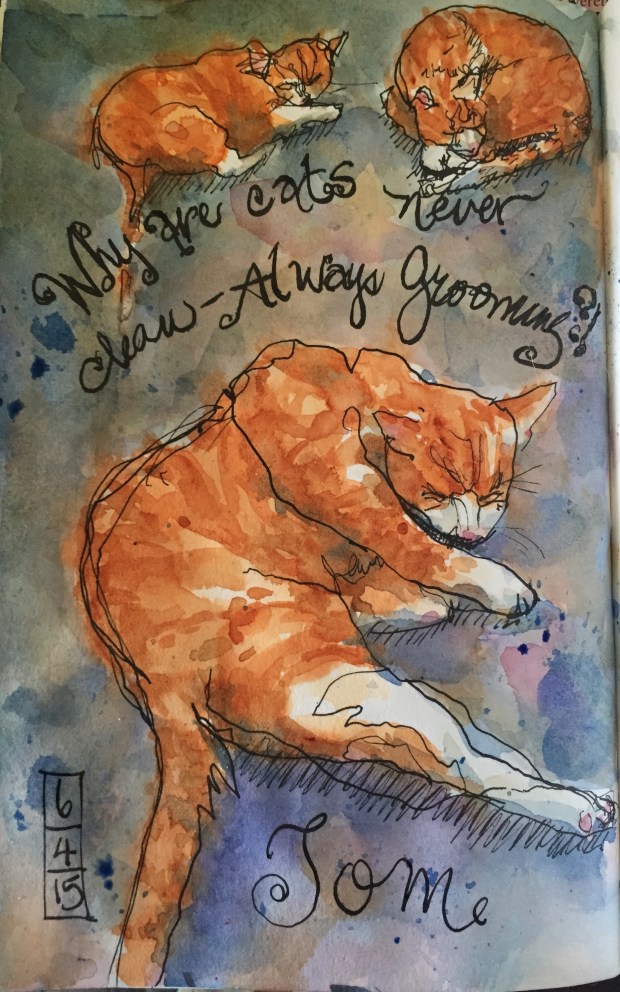 Why are cats never
clean - Always Grooming?!
6
4
15
Tom